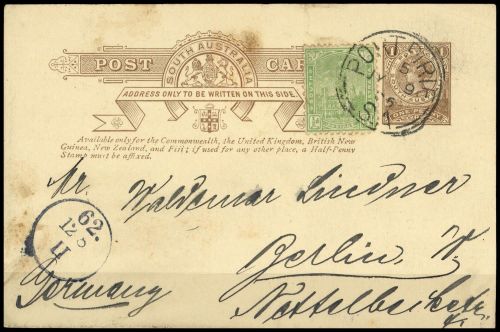 SOUTH AUSTRALIA
POST CAR
ADDRESS ONLY TO BE WRITTEN ON THIS SIDE
Available only for the Commonwealth, the United Kingdom, British New
Guinea, New Zealand, and Fiji; if used for any other place, a Half-Penny
Stamp must be affixed.
Mr. Waldemar Lindner
Berlin, W.
Germany
62.
12 8